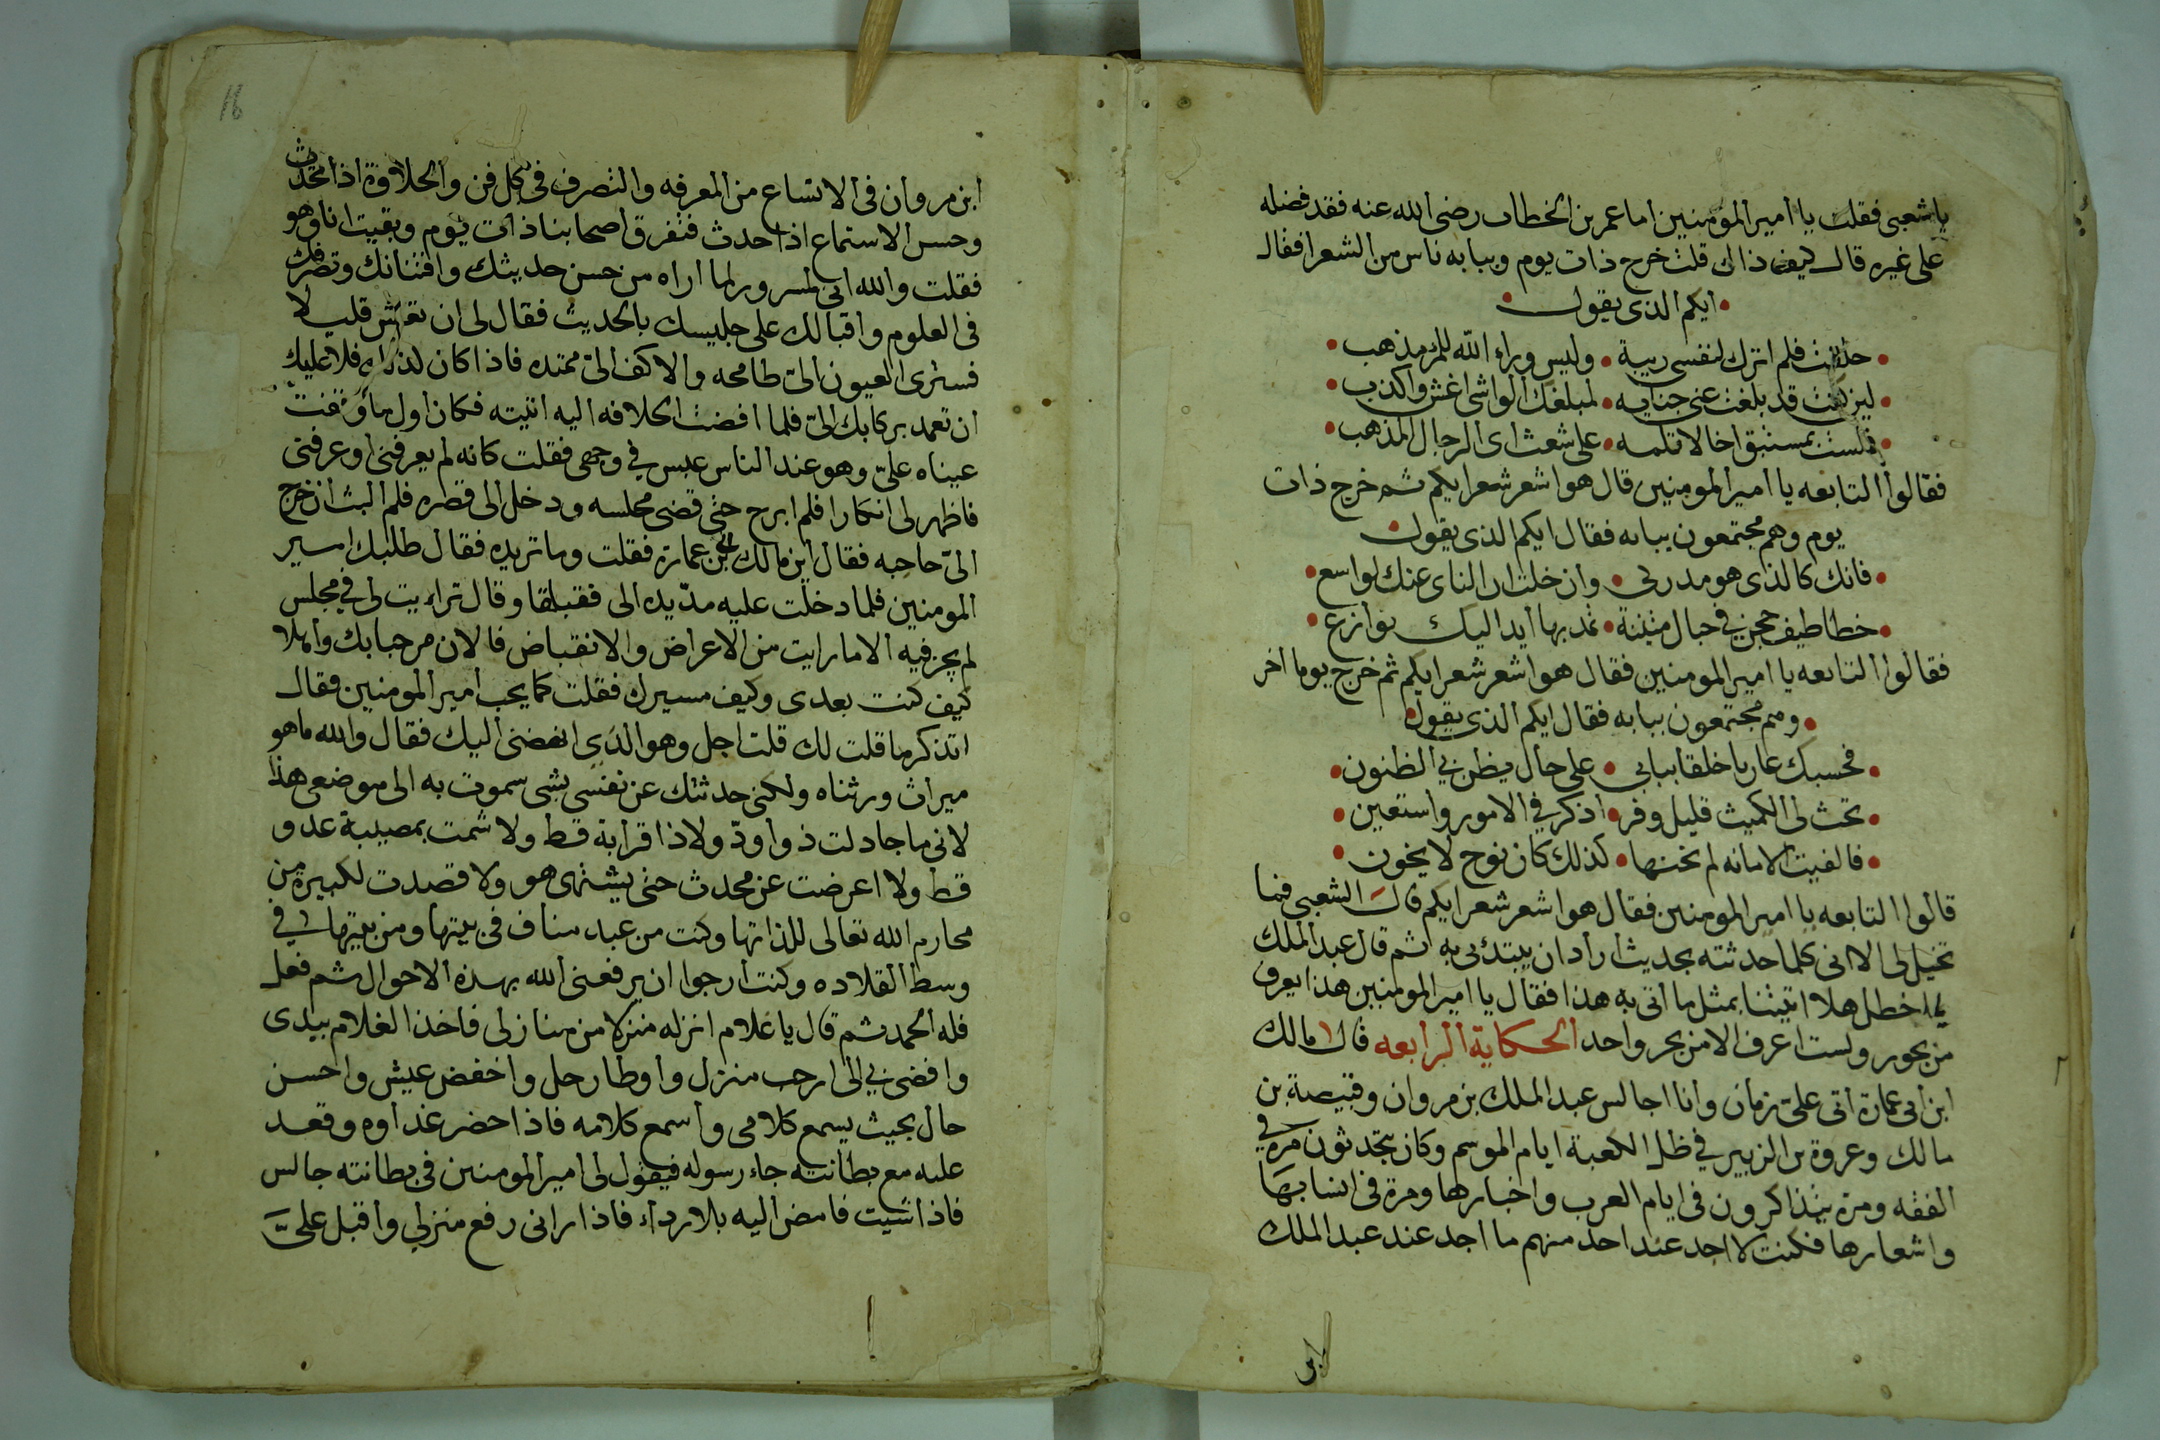 يا شعبى فقلت يا امير المومنين اما عمر بن الخطاب رضى الله عنه فقد فضله
على غيره قال كيف ذاك قلت خرج ذات يوم وببابه ناس من الشعرا فقال
ايكم الذى يقول
حلفت فلم اترك لنفسى ريبة وليس وراء الله للمرء مذهب
لين كنت قد بلغت عنى جنايه لمبلغك الواشى اغش واكذب
فلست بمستبق اخا لا تلمه على شعث اى الرجال المذهب
فقالوا التابعه يا امير المومنين قال هو اشعر شعرايكم ثم خرج ذات
يوم وهم مجتمعون ببابه فقال ايكم الذى يقول
فانك كالذى هو مدركى وان خلت ان الناى عنك لواسع
خطاطيف حجن فى حبال متينة تمد بها أيد اليك نوازع
فقالوا التابعه يا امير المومنين فقال هو اشعر شعرايكم ثم خرج يوما اخر
وهم مجتمعون ببابه فقال ايكم الذى يقول
فحسبك عاريا خلقا ببابى على حال يظن بى الظنون
تحث لى الكميت قليل وفر اذكر فى الامور واستعين
فالفيت الامانه لم تخنها كذلك كان نوح لا يخون
قالوا التابعه يا امير المومنين فقال هو اشعر شعرايكم قال الشعبى فما
تخيل لى الا انى كلما حدثته بحديث أراد ان يبتدئى به ثم قال عبد الملك
يا اخطل هلا اتيتنا بمثل ما أتى به هذا فقال يا امير المومنين هذا يعرف
من بحور ولست اعرف الا من بحر واحد الحكاية الرابعه قال مالك
ابن أبى عمارة أتى على زمان وانا اجالس عبد الملك بن مروان وقبيصة بن
مالك وعروة بن الزبير فى ظل الكعبة ايام الموسم وكان يتحدثون مرة فى
الفقه ومرة يتذاكرون فى ايام العرب واخبارها ومرة فى انسابها
واشعارها فكنت لا اجد عند احد منهم ما اجد عند عبد الملك
ابن
16
ابن مروان فى الاتساع من المعرفه والتصرف فى كل فن والحلاوة اذا تحدث
وحسن الاستماع اذا حدث فتفرق اصحابنا ذات يوم وبقيت انا وهو
فقلت والله انى لمسرور لما اراه من حسن حديثك وافتنانك وتصرفك
فى العلوم واقبالك على جليسك بالحديث فقال لى ان تعش قليلا
فسترى العيون الىّ طامحه والاكف الىّ ممتده فاذا كان لذلك فلا عليك
ان تعمد بركابك الىّ فلما افضت الخلافه اليه اتيته فكان اول ما وقفت
عيناه علىّ وهو عند الناس عبس فى وجهى فقلت كانه لم يعرفنى او عرفنى
فاظهر لى انكارا فلم ابرح حتى قضى مجلسه ودخل الى قصره فلم البث ان خرج
الىّ حاجبه فقال اين مالك بن عمارة فقلت وما تريده فقال طلبك امير
المومنين فلما دخلت عليه مدّ يده الى فقبلقا وقال تراءيت لى فى مجلس
لم يجز فيه الا ما رايت من الاعراض والانقباض فالان مرحبا بك وأهلا
كيف كنت بعدى وكيف مسيرك فقلت كما يحب امير المومنين فقال
اتذكر ما قلت لك قلت اجل وهو الذى انهضنى اليك فقال والله ما هو
ميراث ورثناه ولكنى حدثتك عن نفسى بشى سموت به الى موضعى هذا
لانى ما جادلت ذو أودّ ولا ذا قرابة قط ولا شمت بمصيبة عدو
قط ولا اعرضت عن محدث حتى يشتهى هو ولا قصدت لكبيرة من
محارم الله تعالى للذاتها وكنت من عبد مناف فى بيتها ومن بيتها فى
وسط القلاده وكنت أرجوا ان يرفعنى الله بهذه الاحوال ثم فعل
فله الحمد ثم قال يا غلام انزله منزلا من منازلى فاخذ الغلام بيدى
وافضى بى الى ارحب منزل وأوطا رحل واخفض عيش واحسن
حال بحيث يسمع كلامى وأسمع كلامه فاذا حضر غداوه وقعد
عليه مع بطانته جاء رسوله فيقول لى امير المومنين فى بطانته جالس
فاذا شيت فامض اليه بلا رداء فاذا رانى رفع منزلى واقبل علىّ